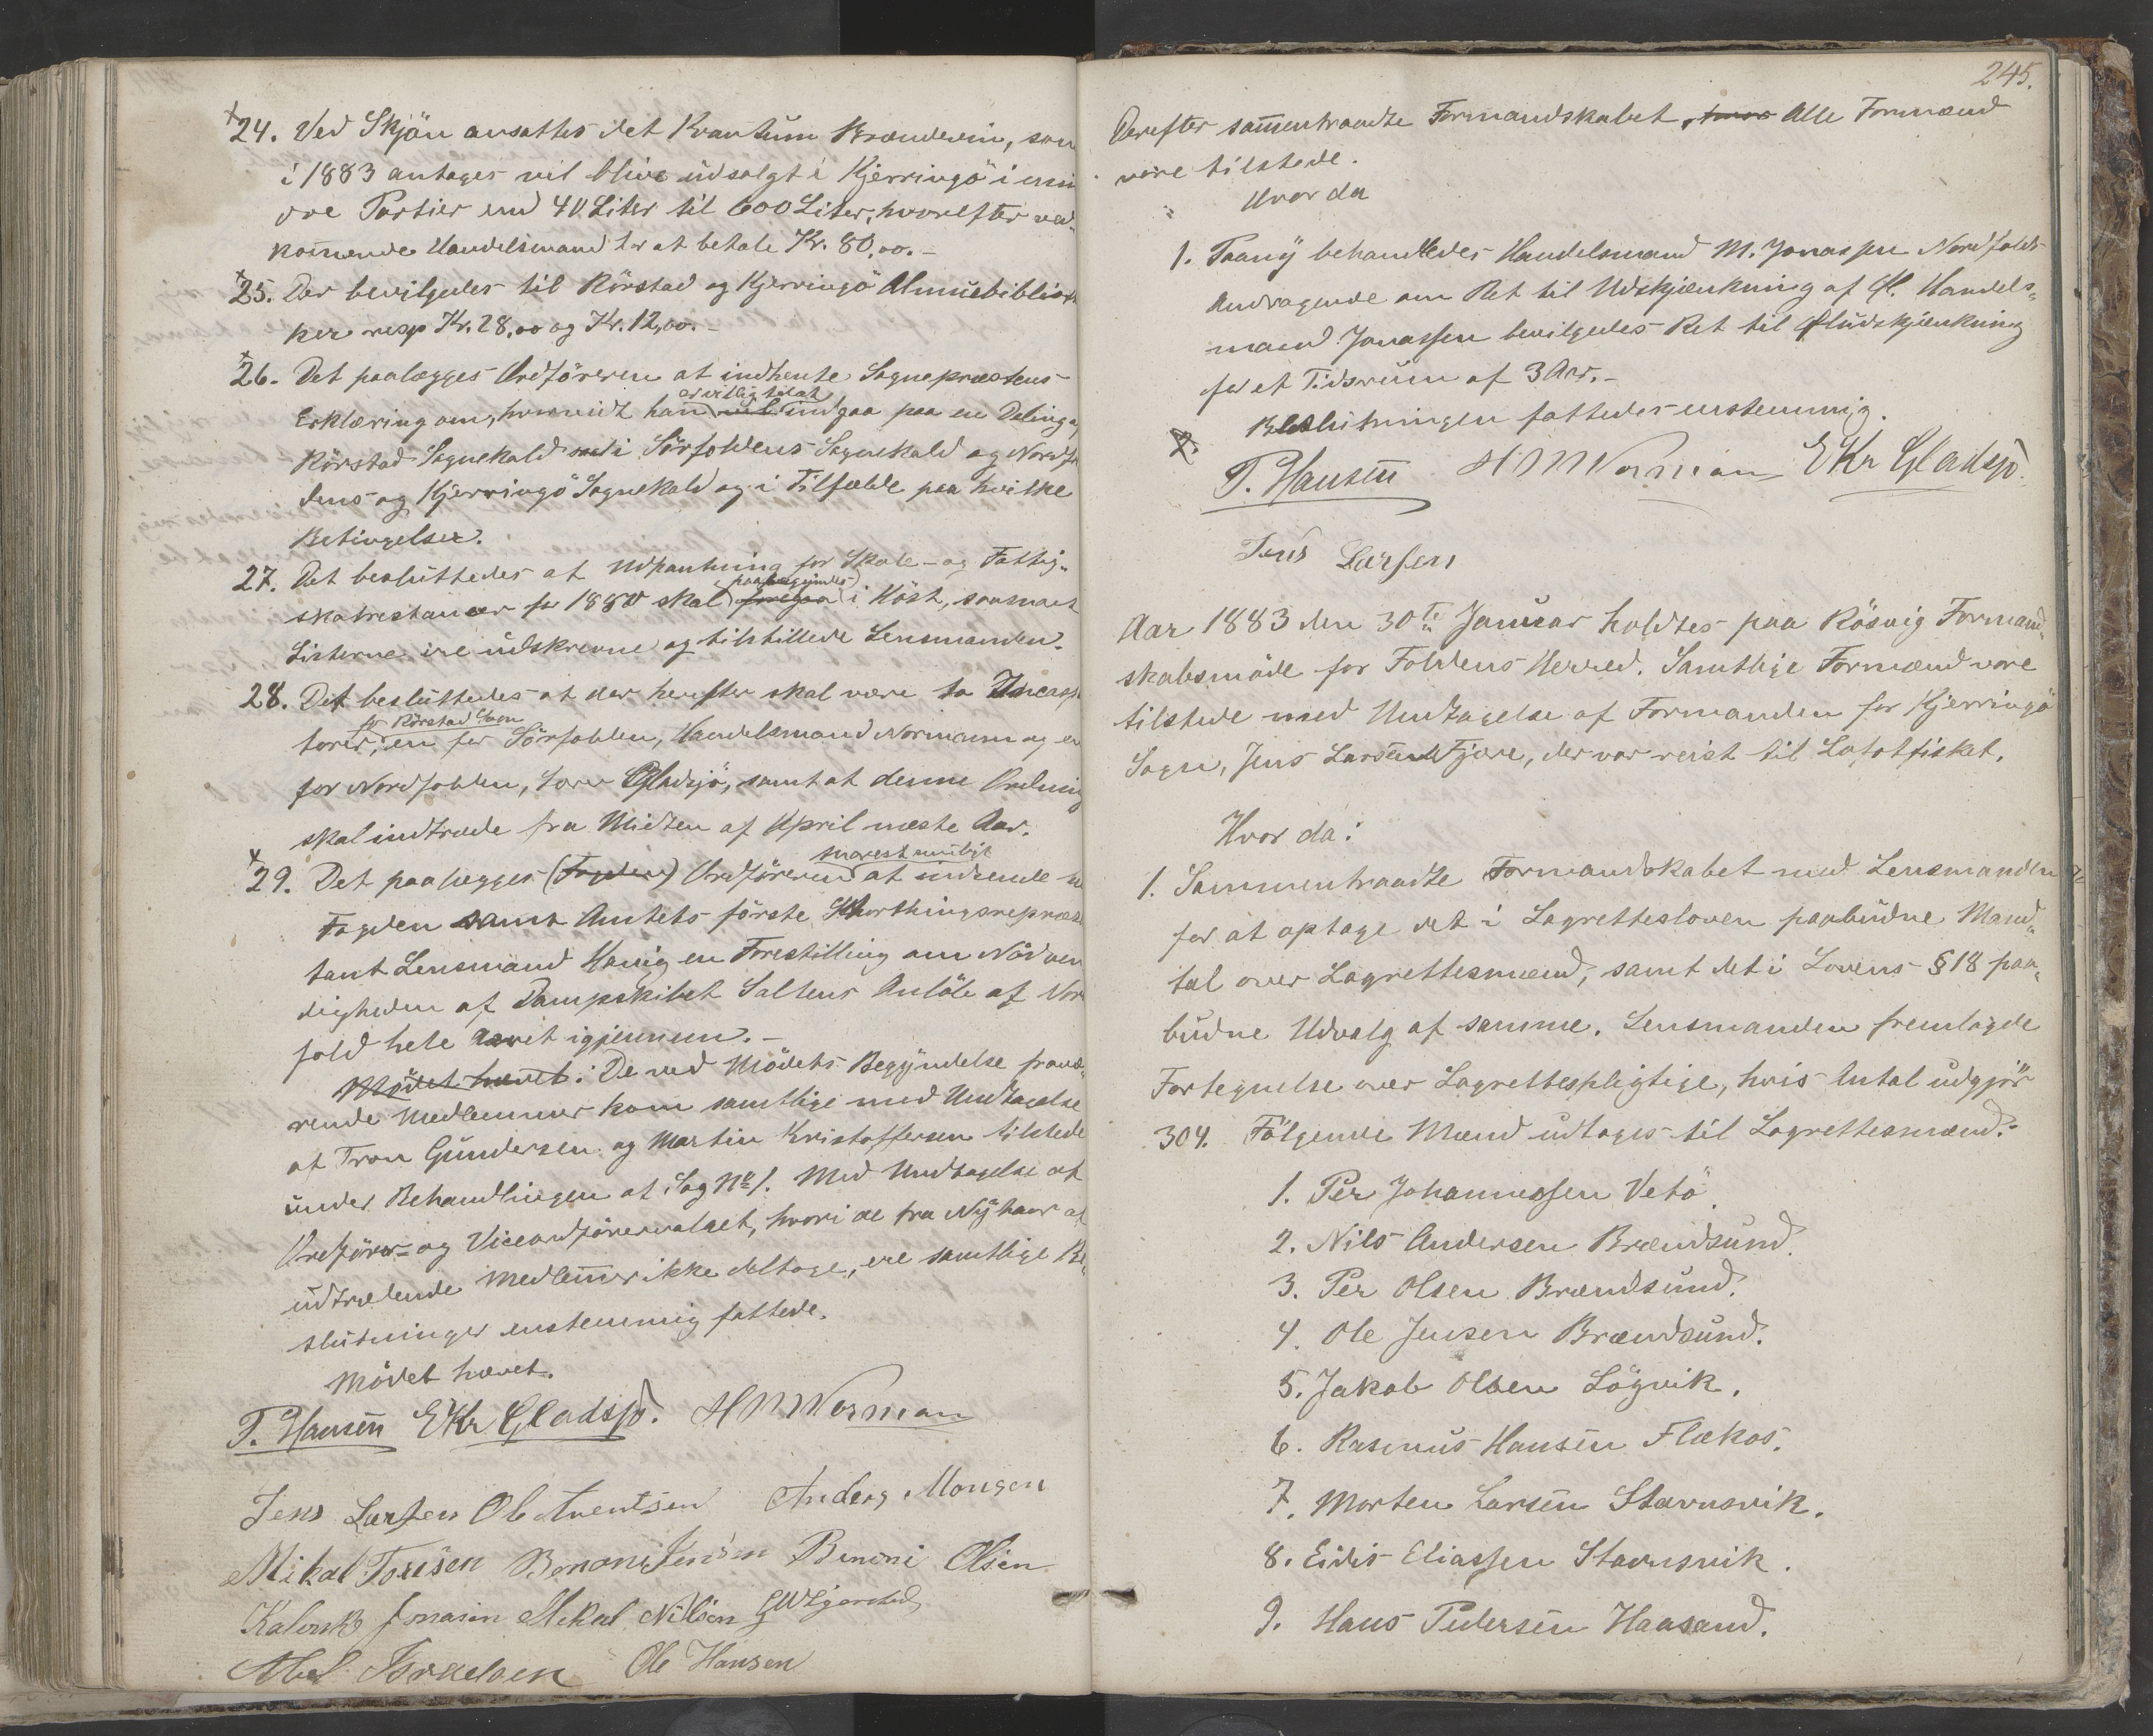 24. Ved Skjön ansattes det Kvantum Brændevin, som
i 1883 antages vil blive udsalgt i Kjerringö i min
dre Partier end 40 Liter til 600 Liter, hvorefter ved-
kommende Handelsmand har at betale Kr. 80,00.-
25. Der bevilgedes til Rörstad og Kjerringö Almuebiblio
ker resp Kr. 28,00 og Kr. 12,00.-
26. Det paalægges Ordföreren at indhente Sognepræstens
er villig til at
Erklæring om, hvorvidt han vil indgaa paa en Deling a
Rörstad Sognekald i Sörfoldens Sognekald og Nordfo
dens og Kjerringö Sognekald og i Tilfælde paa hvilke
Betingelser.
27. Det besluttedes at Udpantning for Skole- og Fattig-
paabegyndes
skatrestancer for 1880 skal foregaa i Höst, saasnart
Listerne ere udskrevne og tilstillede Lensmanden.
28. Det besluttedes at der herefter skal være to Incass
for Rörstad Sogn
torer, en for Sörfolden, Handelsmand Normann og en
for Nordfolden, Gladsjö, samt at denne Ordning
skal indtræde fra Midten af April næste Aar.
snarest muligt
29. Det paalægges (Fogden) Ordföreren at indsende
Fogden samt Amtets förste Storthingsrepræse
tant Lensmand Hanig en Forestilling om Nödven
digheden af Dampskibet Saltens Anlöb af Nor
fold hele Aaret igjennem.-
Mödet hævet. De ved Mödets Begyndelse fravæ-
rende Medlemmer kom samtlige med Undtagelse
af Tron Gundersen og Martin Kristoffersen tilstede
under Behandlingen af Sag No 1. Med Undtagelse af
Ordförer- og Viceordförervalget, hvori de fra Nyttaar af
udtrædende Medlemmer ikke deltoge, ere samtlige Be-
slutninger enstemmig fattede.
Mödet hævet.
T. Hansen EKr Gladsjö. HMNorman
Jens Larsen Ole Arentsen Anders Monsen
Mikal Torisen Benoni Jensen Benoni Olsen
Jonasen Mekal Nilsen
Abel Israelsen Ole Hansen
245.
Derefter sammentraadte Formandskabet, Alle Formænd
vare tilstede.
Hvor da
1. Paany behandledes Handelsmand M. Jonassen Nordfolds
Andragende om Ret til Udskjænkning af Öl. Handels-
mand Jonassen bevilgedes Ret til Öludskjænkning
for et Tidsrum af 3 Aar.-
Beslutningen fattedes enstemmig.
T. Hansen HMNorman EKr Gladsjö.
Jens Larsen
Aar 1883 den 30te Januar holdtes paa Rösvig Formand-
skabsmöde for Foldens Herred. Samtlige Formænd vare
tilstede med Undtagelse af Formanden for Kjerringö
Sogn, Jens Larsen Fjære, der var reist til Lofotfisket.
Hvor da:
1. Sammentraadte Formandskabet med Lensmanden
for at optage det i Lagrettesloven paabudne Mand-
tal over Lagrettesmænd, samt det i Lovens § 18 paa-
budne Udvalg af samme. Lensmanden fremlagde
Fortegnelse over Lagrettespligtige, hvis Antal udgjör
304. Fölgende Mænd udtoges til Lagrettesmænd:
1. Per Johannessen Vetö.
2. Nils Andersen Brændsund.
3. Per Olsen Brændsund.
4. Ole Jensen Brændsund.
5. Jakob Olsen Lögvik.
6. Rasmus Hansen Flekos.
7. Morten Larsen Stavnsvik.
8. Eidis Eliassen Stavnsvik.
9. Hans Pedersen Haasand.